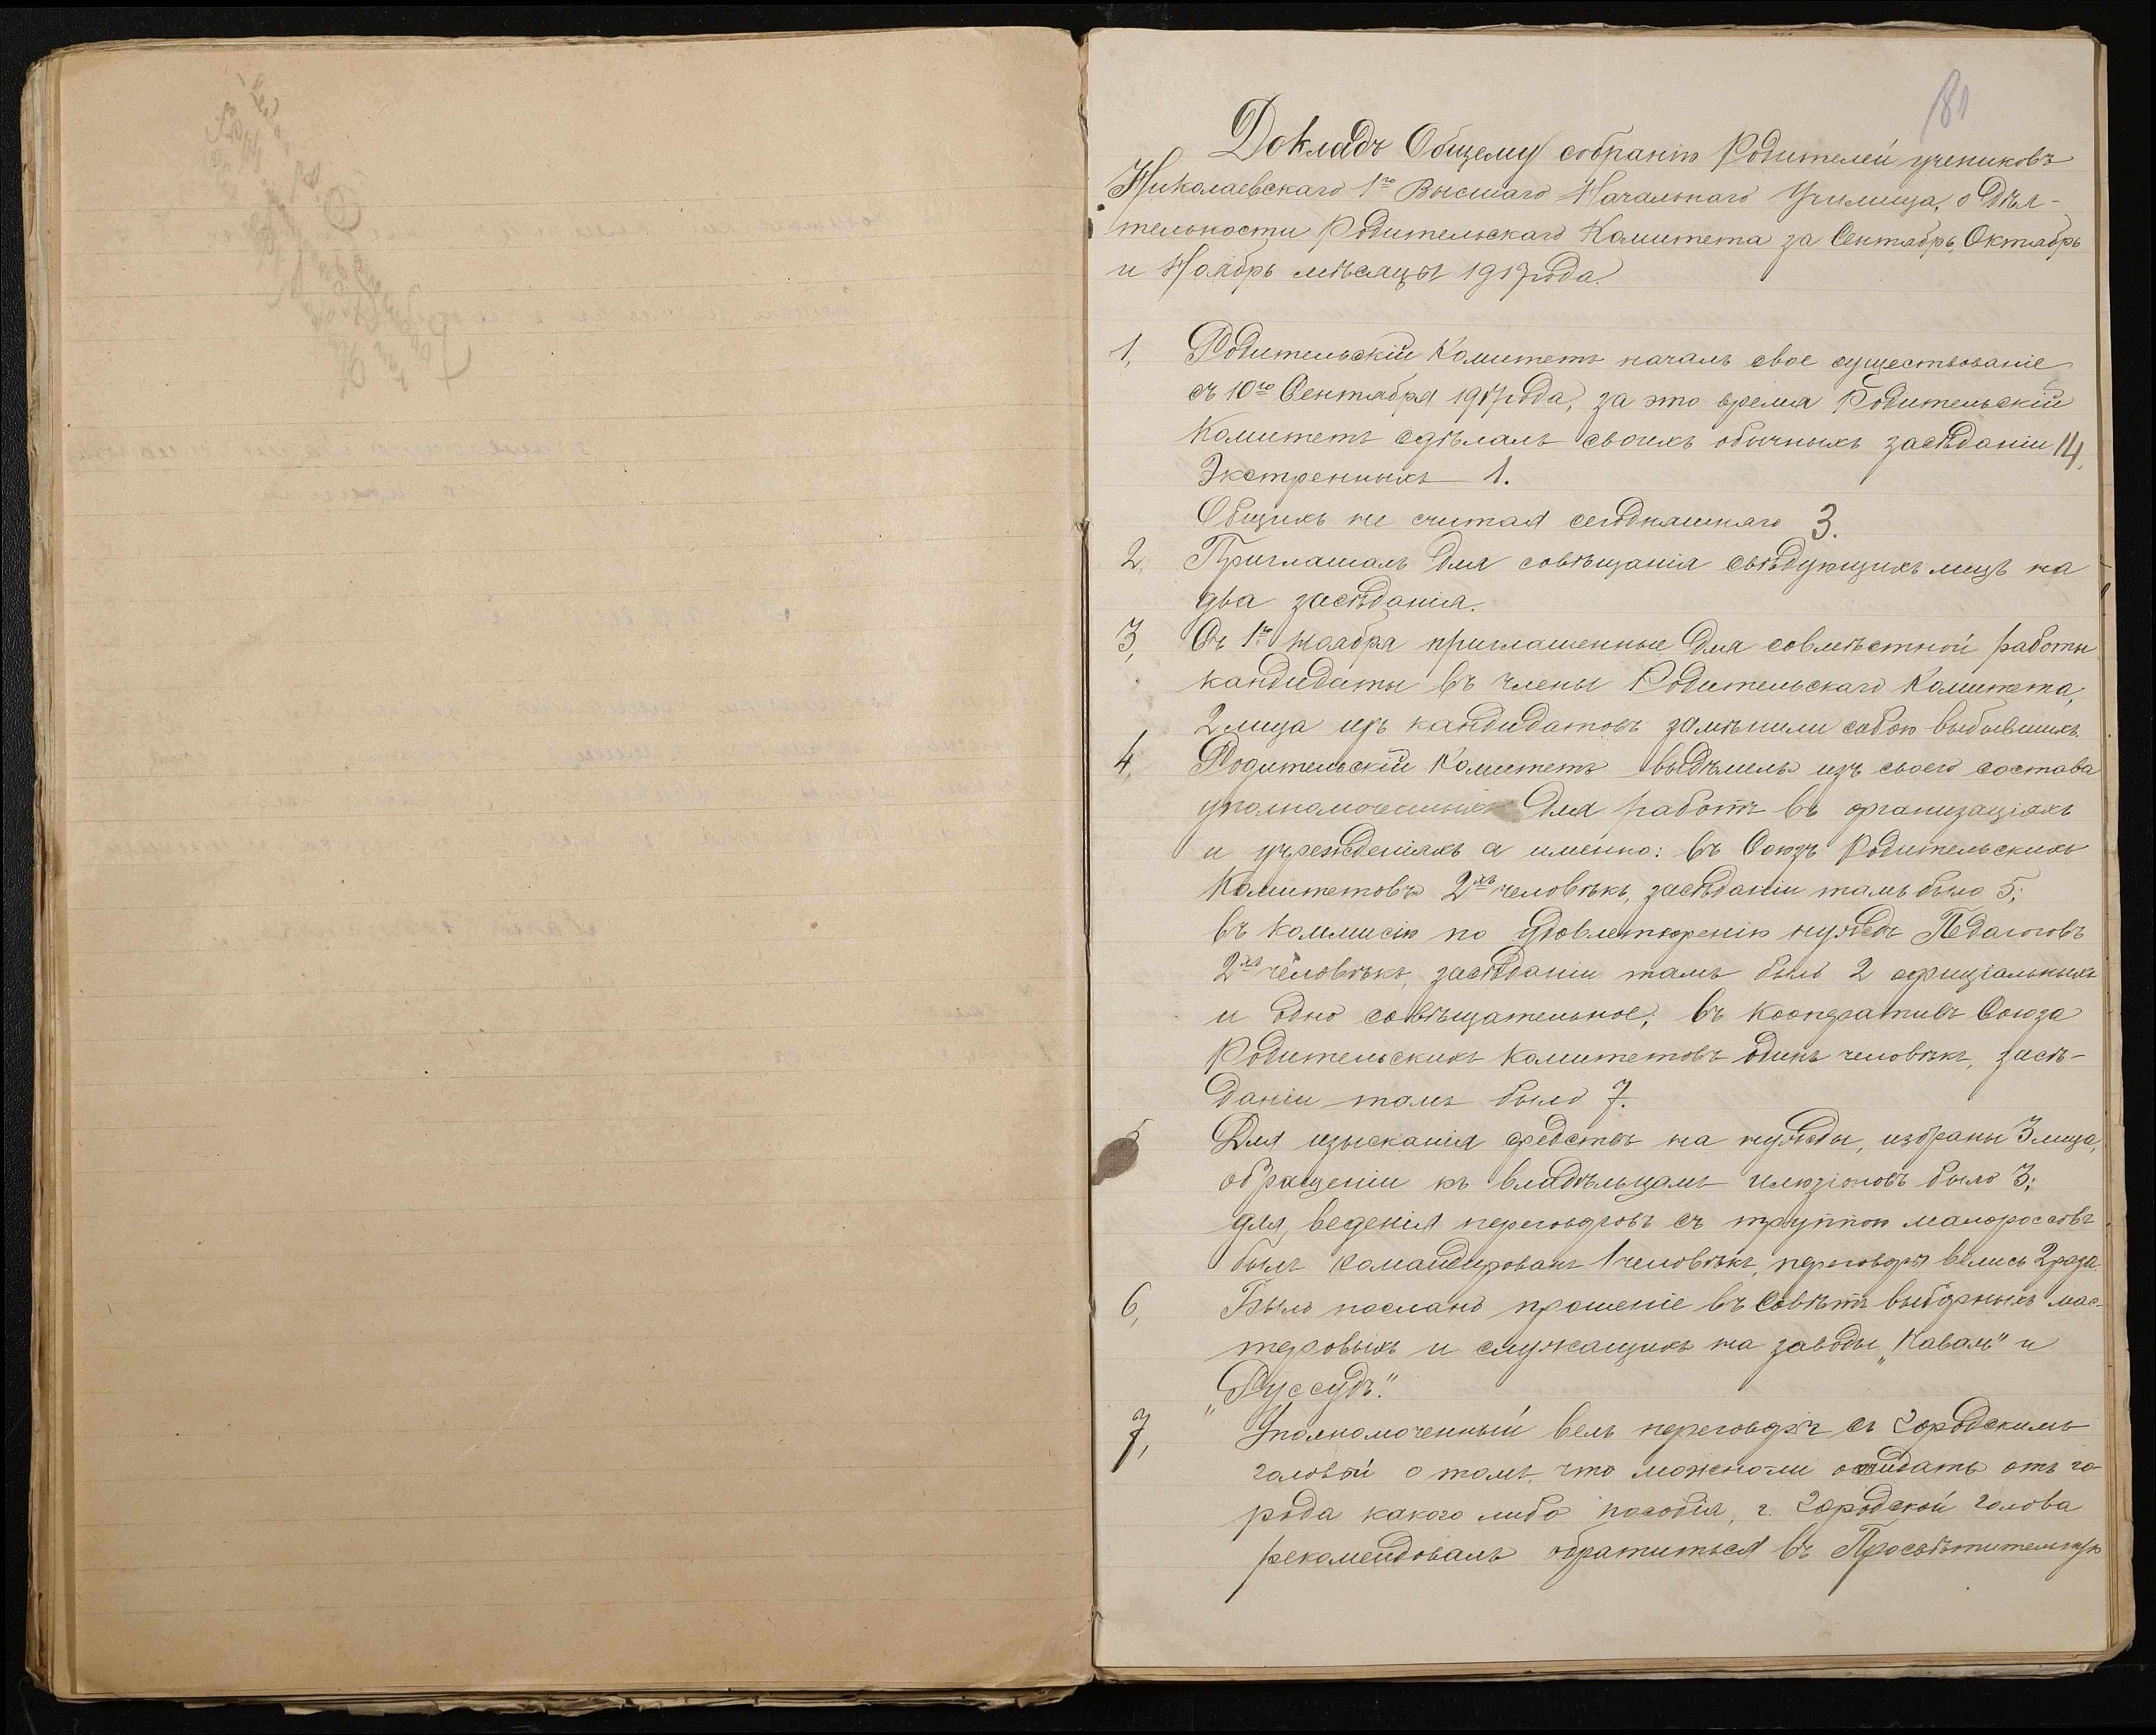 81
Докладъ Общему собранію Родителей учениковъ
Николаевскаго 1го Высшаго Начальнаго Училища, о дѣя-
тельности Родительскаго Комитета за Сентябрь, Октябрь
и Ноябрь мѣсяцы 1917 года.
1, Родительскій Комитетъ началъ свое существованіе
съ 10го Сентября 1917 года, за это время Родительскій
Комитетъ сдѣлалъ своихъ обычныхъ засѣданій 14,
Экстренныхъ 1.
Общихъ не считая сегодняшняго 3.
2, Приглашалъ для совѣщанія свѣдующихъ лицъ на
два засѣданія.
3, Съ 1го ноября приглашенные для совмѣстной работы
кандидаты въ члены Родительскаго Комитета,
2 лица изъ кандидатовъ замѣнили собою выбывшихъ.
4, Родительскій Комитетъ выдѣлилъ изъ своего состава
уполномоченныхъ для работъ въ организаціяхъ
и учрежденіяхъ а именно: въ Союзъ Родительскихъ
Комитетовъ 2хъ человѣкъ, засѣданій тамъ было 5;
въ коммисію по удовлетворенію нуждъ Педагоговъ
2хъ человѣкъ, засѣданій тамъ было 2 офиціальныхъ
и одно совѣщательное; въ кооперативъ Союза
Родительскихъ Комитетовъ одинъ человѣкъ, засѣ-
даній тамъ было 7.
5 Для изысканія средствъ на нужды, избраны 3 лица,
обращеній къ владѣльцамъ илюзіоновъ было 3;
для веденія переговоровъ съ труппою малороссовъ
былъ командированъ 1 человѣкъ, переговоры велись 2 раза.
6, Было послано прошеніе въ Совѣтъ выборныхъ мас-
теровыхъ и служащихъ на заводы „Наваль" и
„Руссудъ".
7, Уполномоченный велъ переговоры съ Городскимъ
головой о томъ, что можно-ли ожидать отъ го-
рода какого либо пособія, г. Городской голова
рекомендовалъ обратиться въ Просвѣтительную